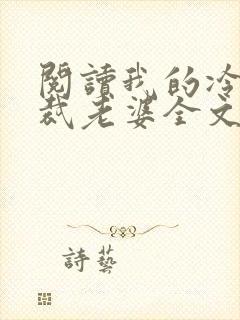 閱讀我的冷
裁老婆全文
詩藝